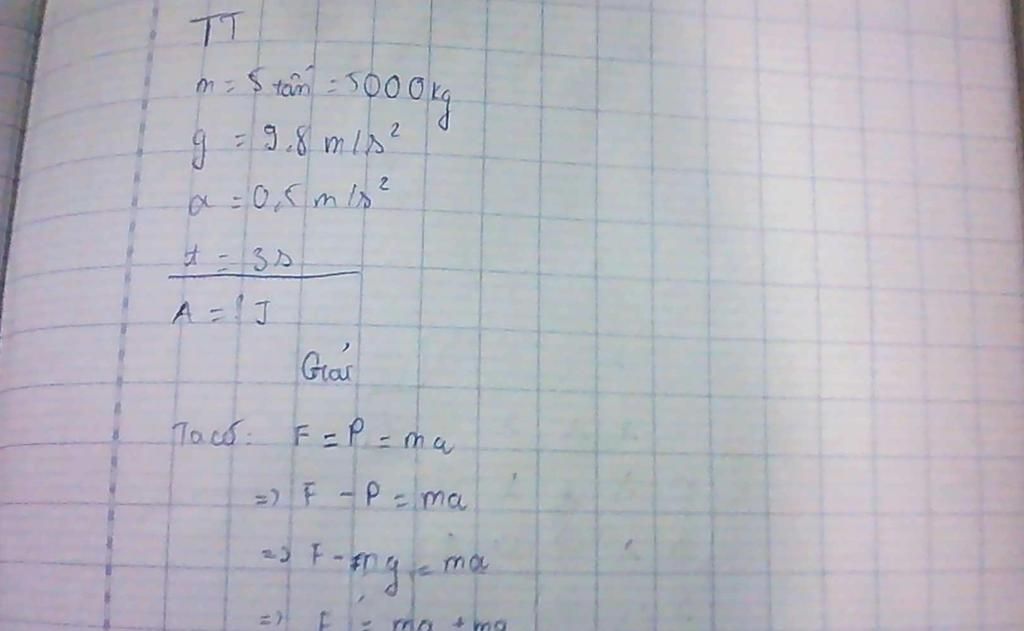 TT
m = 5 tấn = 5000kg
g = 9.8 m/s²
a = 0,5 m/s²
t = 3s
A = ? J
Giải
Ta có: F = P = ma
=> F - P = ma
=> F - mg = ma
=> F = ma + mg